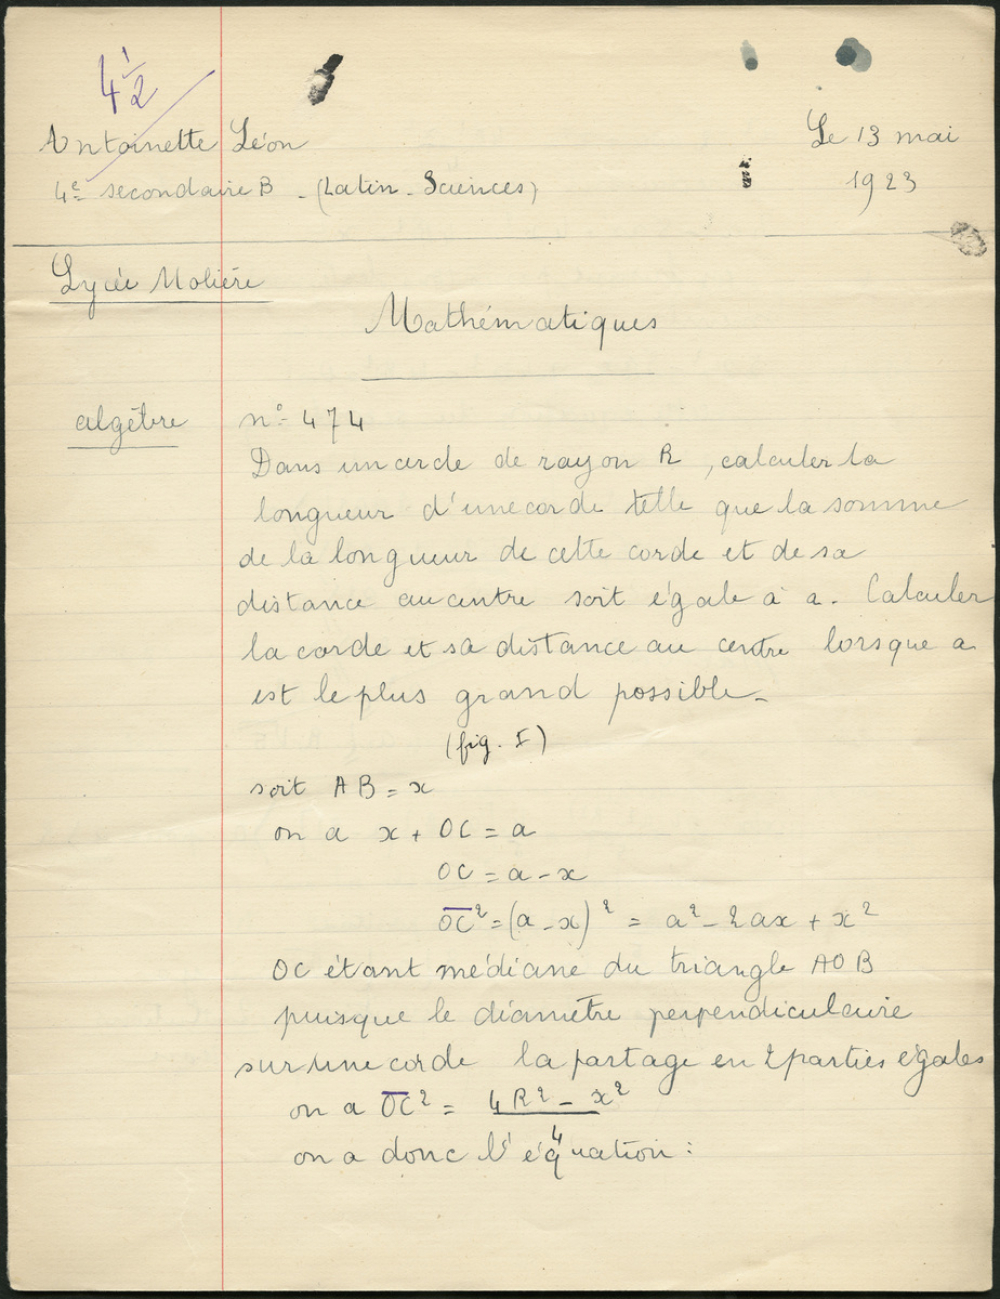 4 1/2
Antoinette Léon
Le 13 mai
4e secondaire B - (Latin - Sciences)
1923
Lycée Molière
Mathématiques
algèbre
n° 474
Dans un cercle de rayon R, calculer la
longueur d'une corde telle que la somme
de la longueur de cette corde et de sa
distance au centre soit égale à a. Calculer
la corde et sa distance au centre lorsque a
est le plus grand possible -
(fig. I)
soit AB = x
on a x + OC = a
OC = a - x
O̅C̅² = (a - x)² = a² - 2ax + x²
OC étant médiane du triangle AOB
puisque le diamètre perpendiculaire
sur une corde la partage en 2 parties égales
on a O̅C̅² = 4R² - x²
4
on a donc l'équation :